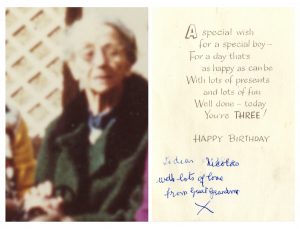 A special wish
for a special boy -
For a day that's
as happy as can be
With lots of presents
and lots of fun
Well done - today
You're THREE!
HAPPY BIRTHDAY
To dear Nikolas
with lots of love
from Great Grandma
X